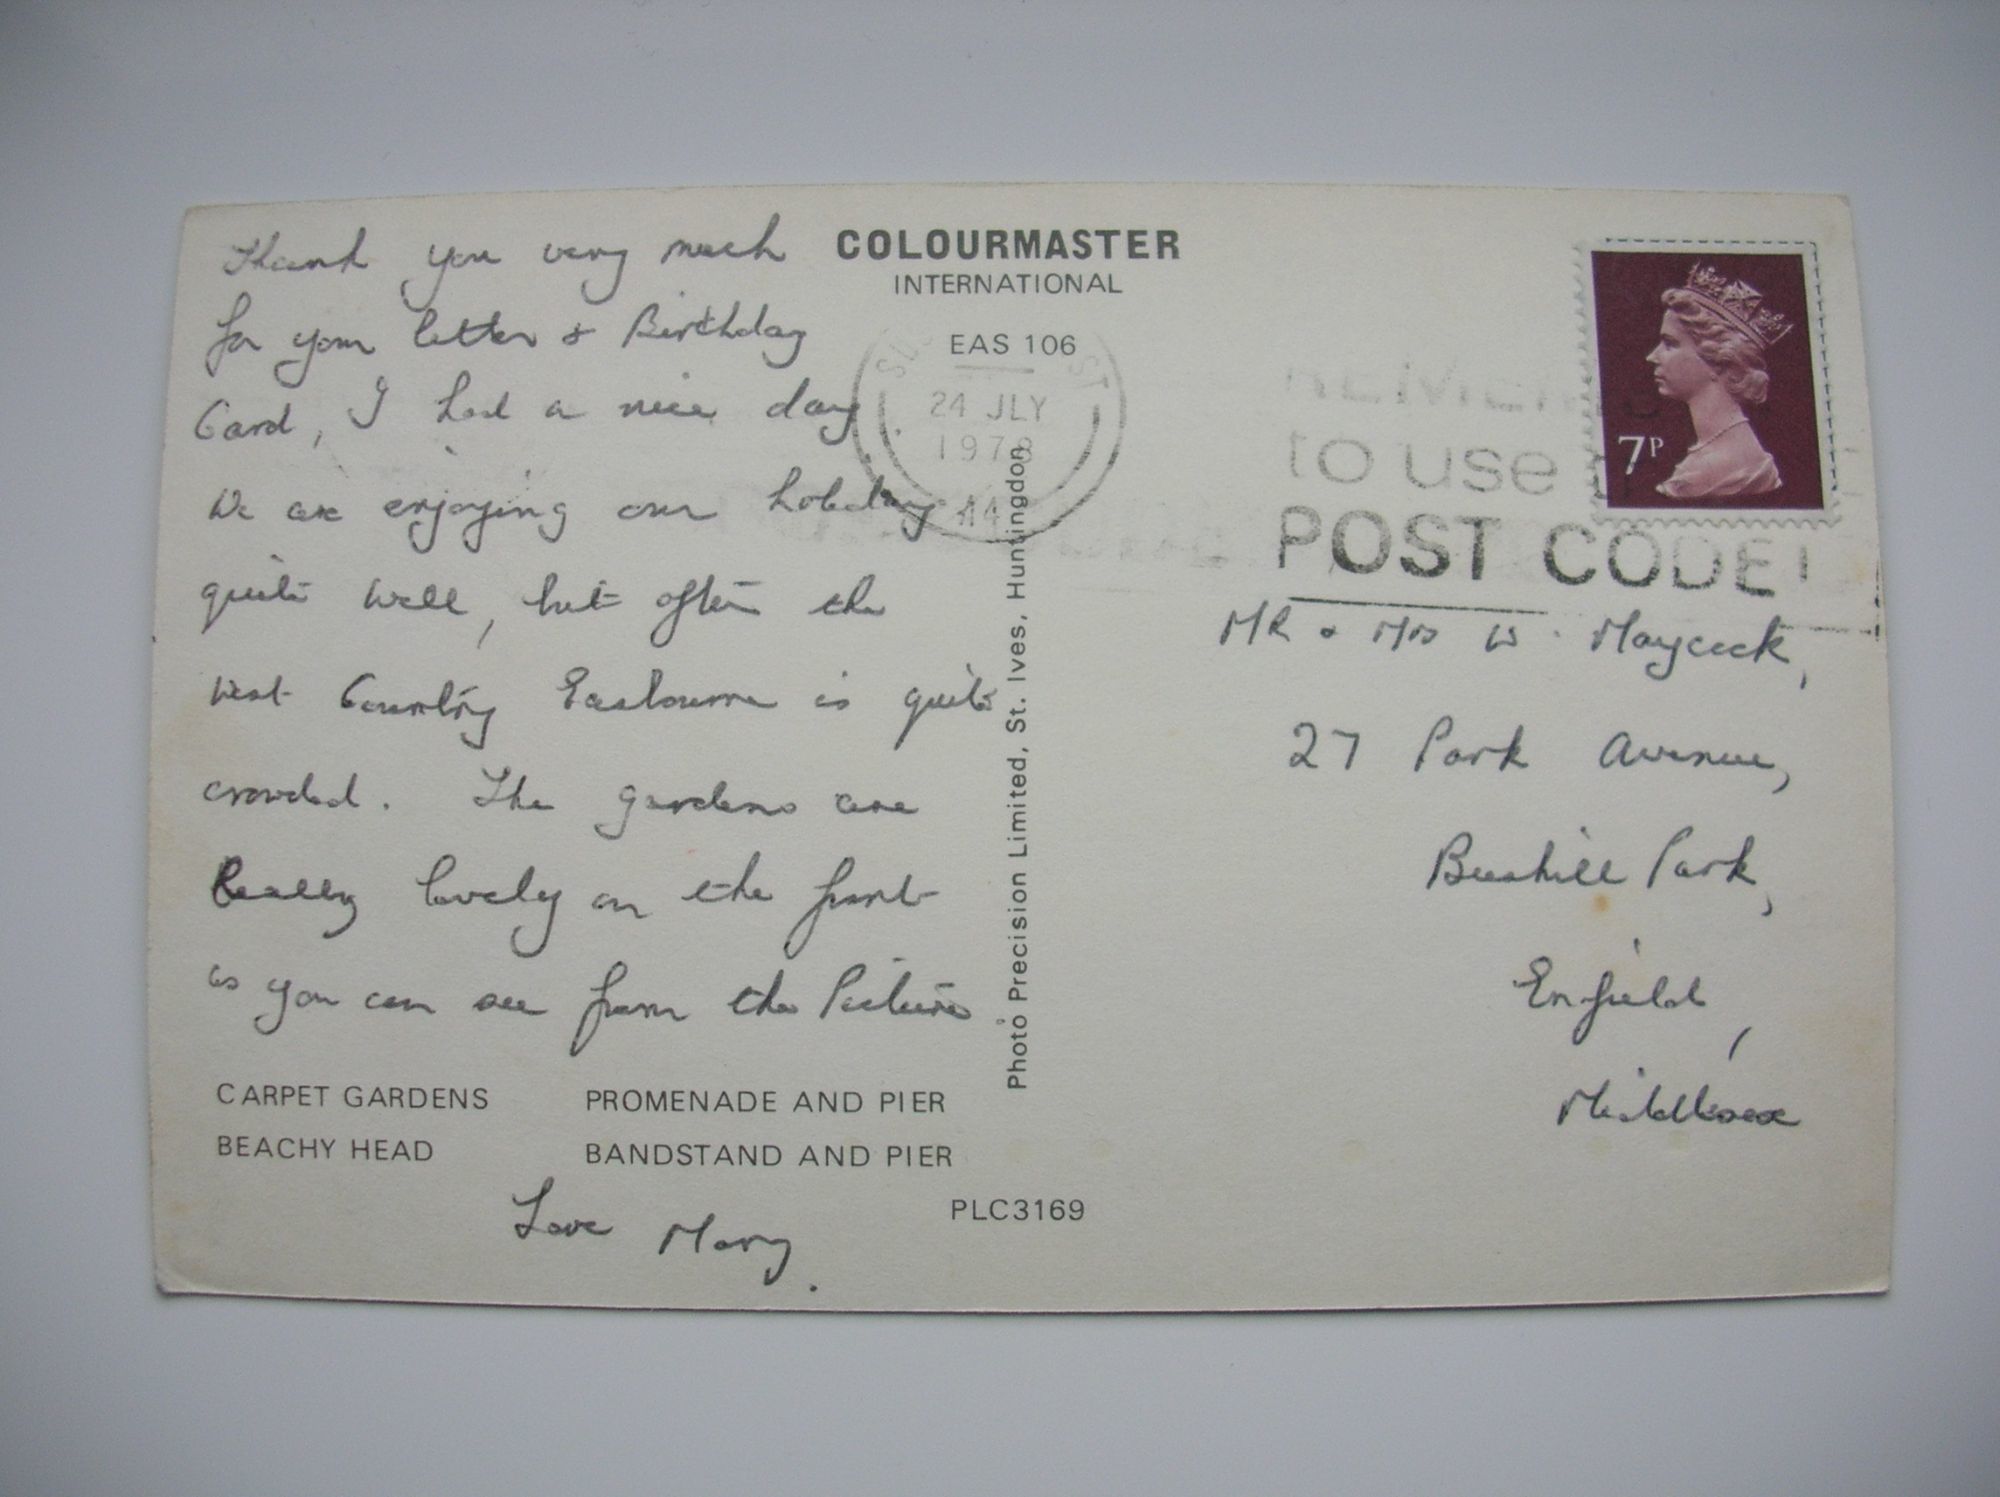 Thank you very much
for your letter & Birthday
Card, I had a nice day.
We are enjoying our holiday
quite well, but after the
West Country Eastbourne is quite
crowded. The gardens are
Really lovely on the front
as you can see from the Picture
CARPET GARDENS PROMENADE AND PIER
BEACHY HEAD BANDSTAND AND PIER
Love Mary.
PLC3169
COLOURMASTER
INTERNATIONAL
EAS 106
24 JLY
1978
Photo Precision Limited, St. Ives, Huntingdon.
to use
POST CODE!
7P
MR & Mrs W. Maycock,
27 Park Avenue,
Bushill Park,
Enfield,
Middlesex